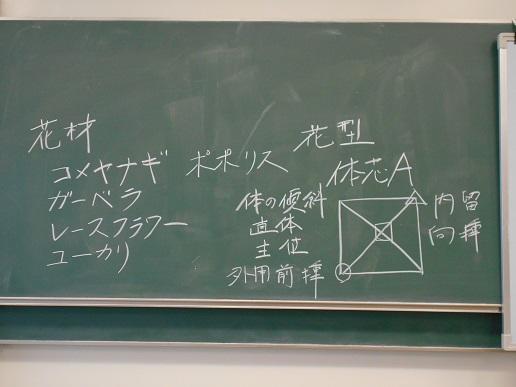 花材
コメヤナギ ポポリス
ガーベラ
レースフラワー
ユーカリ
花型
体芯A
体の傾斜
直体
主位
外用前挿
内留
向挿